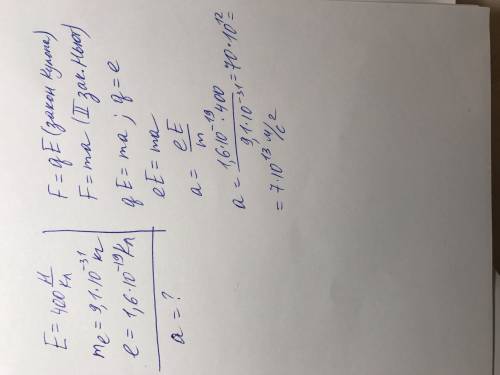 E = 400 Н/Кл
mе = 9,1·10⁻³¹ кг
e = 1,6·10⁻¹⁹ Кл
a = ?
F = qE (закон Кулона)
F = ma (II зак. Ньют)
qE = ma ; q = e
eE = ma
a = eE/m
a = 1,6·10⁻¹⁹·400/9,1·10⁻³¹ = 70·10¹² =
= 7·10¹³ м/с²